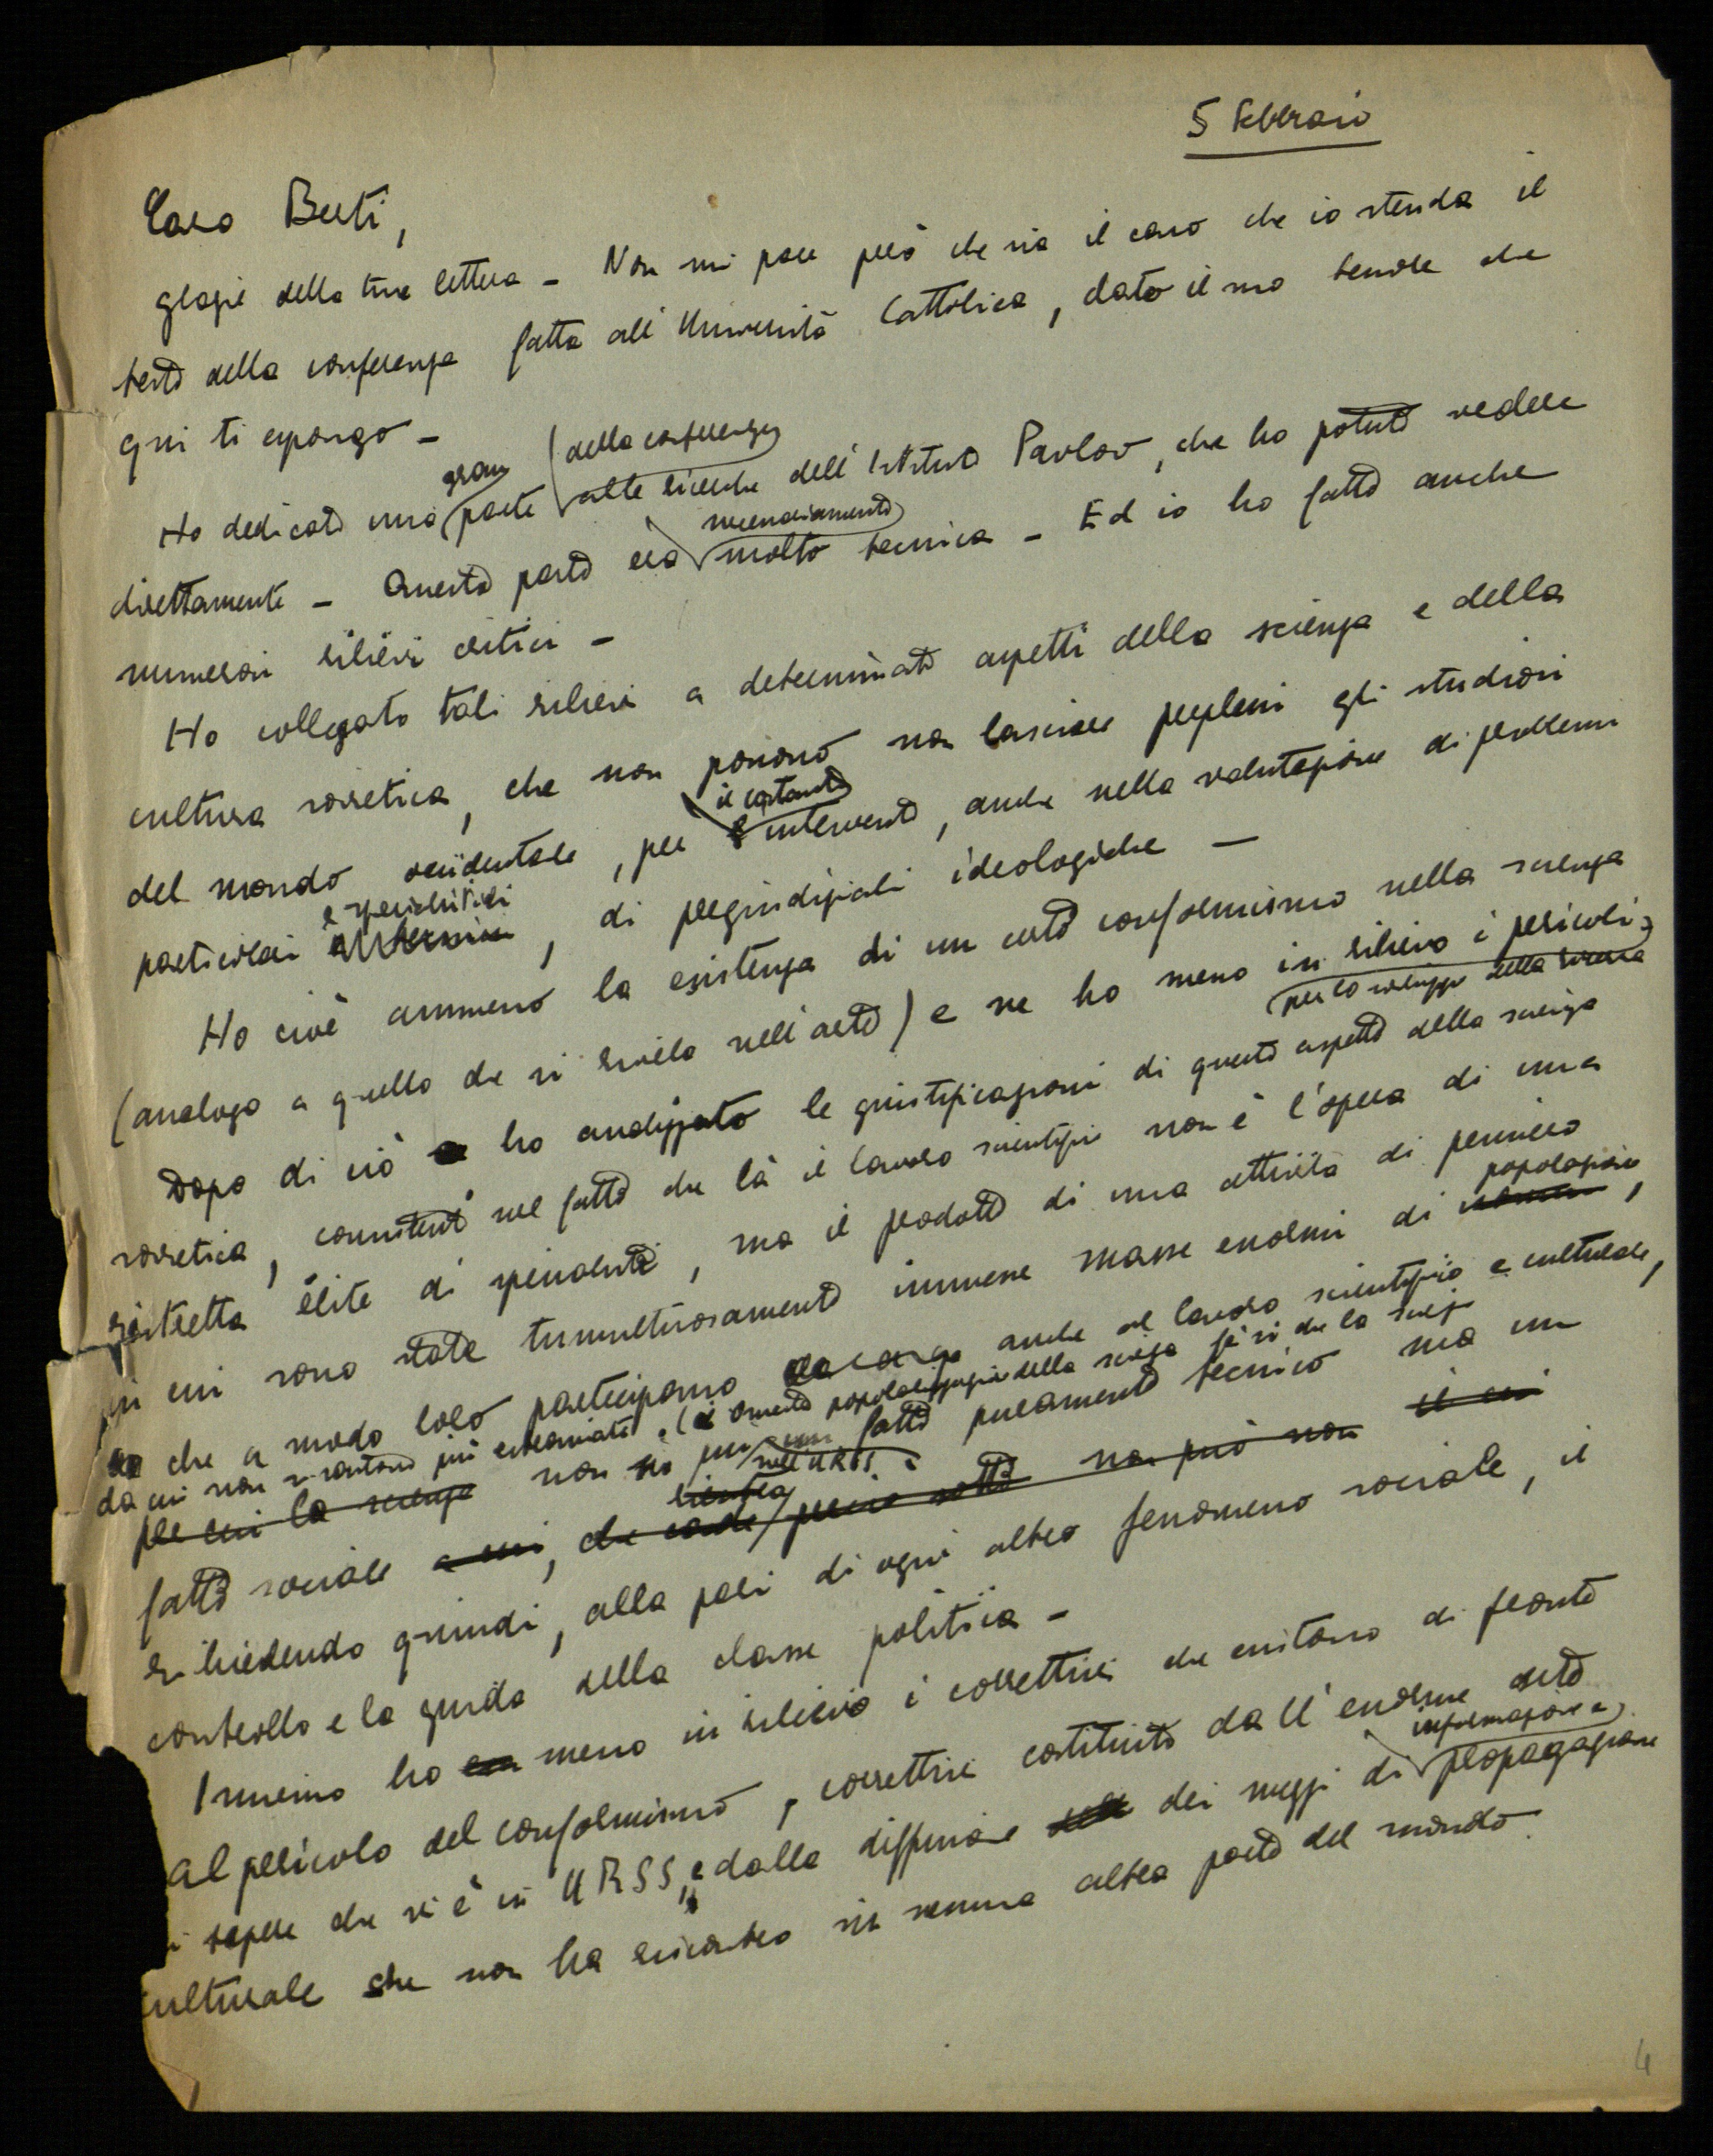 5 Febbraio
Caro Berti,
grazie della tua lettera - Non mi pare però che sia il caso che io stenda il
testo della conferenza fatta all'Università Cattolica, dato il suo tenore che
qui ti espongo -
Ho dedicato una gran parte della conferenza alle ricerche dell'Istituto Pavlov, che ho potuto vedere
direttamente - Questa parte era necessariamente molto tecnica - Ed io ho fatto anche
numerosi rilievi critici -
Ho collegato tali rilievi a determinati aspetti della scienza e della
cultura sovietica, che non possono non lasciare perplessi gli studiosi
del mondo occidentale, per il costante intervento, anche nella valutazione di problemi
particolari e specialistici, di pregiudiziali ideologiche -
Ho cioè ammesso la esistenza di un certo conformismo nella scienza
(analogo a quello che si rivela nell'arte) e ne ho messo in rilievo i pericoli
per lo sviluppo della scienza
Dopo di ciò ho analizzato le giustificazioni di questo aspetto della scienza
sovietica, consistenti nel fatto che là il lavoro scientifico non è l'opera di una
ristretta élite di specialisti, ma il prodotto di una attività di pensiero
in cui sono state tumultuosamente immesse masse enormi di popolazione,
che a modo loro partecipano anche al lavoro scientifico e culturale,
da cui non si sentono più estraniate. (Questa popolarizzazione della scienza fa sì che la scienza
non sia più nell'URSS un fatto puramente tecnico ma un
fatto sociale,
richiedendo quindi, alla pari di ogni altro fenomeno sociale, il
controllo e la guida della classe politica -
Insieme ho messo in rilievo i correttivi che esistono di fronte
al pericolo del conformismo, correttivi costituiti dall'enorme sete
di sapere che vi è in URSS, e dalla diffusione dei mezzi di informazione e propagazione
culturale che non ha riscontro in nessuna altra parte del mondo.
4